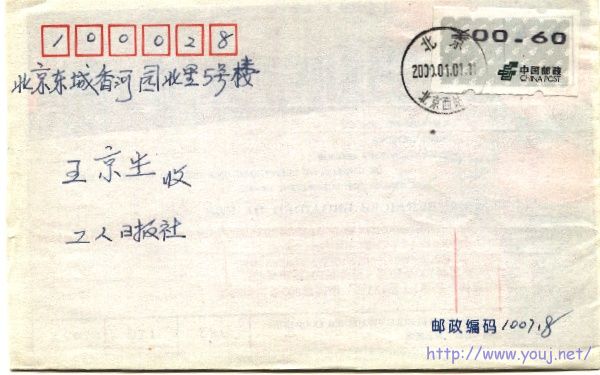 100028
北京东城香河园北里5号楼
王京生 收
工人日报社
¥00.60
中国邮政
CHINA POST
北京
2000.01.01.11
邮政编码
http://www.youj.net/